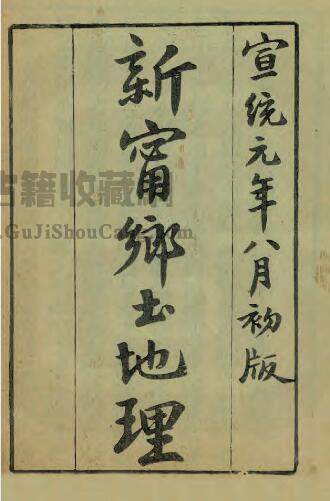 宣統元年八月初版
新甯鄉土地理
古籍收藏
.GuJiShouCa